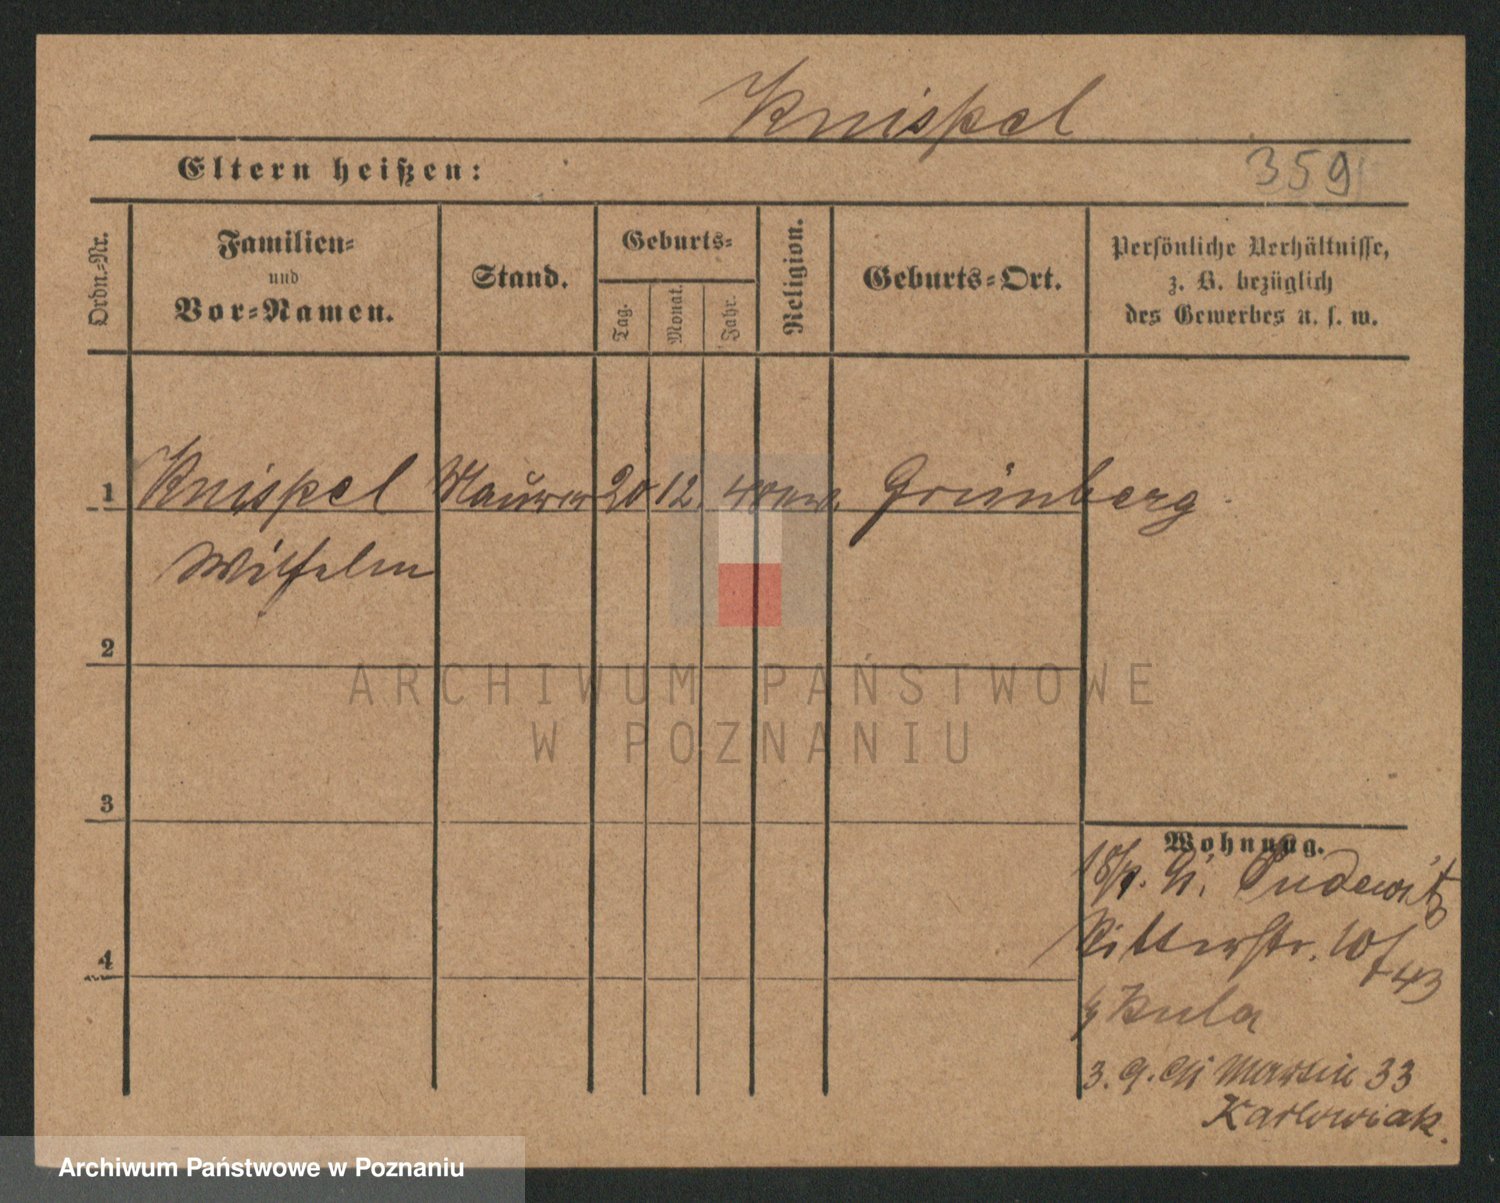 Knispel
Eltern heißen:
359
Ordn.-Nr.
Familien-
und
Vor-Namen.
Stand.
Geburts-
Tag.
Monat.
Jahr.
Religion.
Geburts-Ort.
Persönliche Verhältnisse,
z. B. bezüglich
des Gewerbes u. s. w.
1 Knispel Maurer 20 12. 48 Grünberg
Wilhelm
2
3
4
Wohnung.
Pudewitz
Ritterstr. 10
43
Kula
3. 9. Martin 33
Karlowiak.
ARCHIWUM PAŃSTWOWE
W POZNANIU
Archiwum Państwowe w Poznaniu